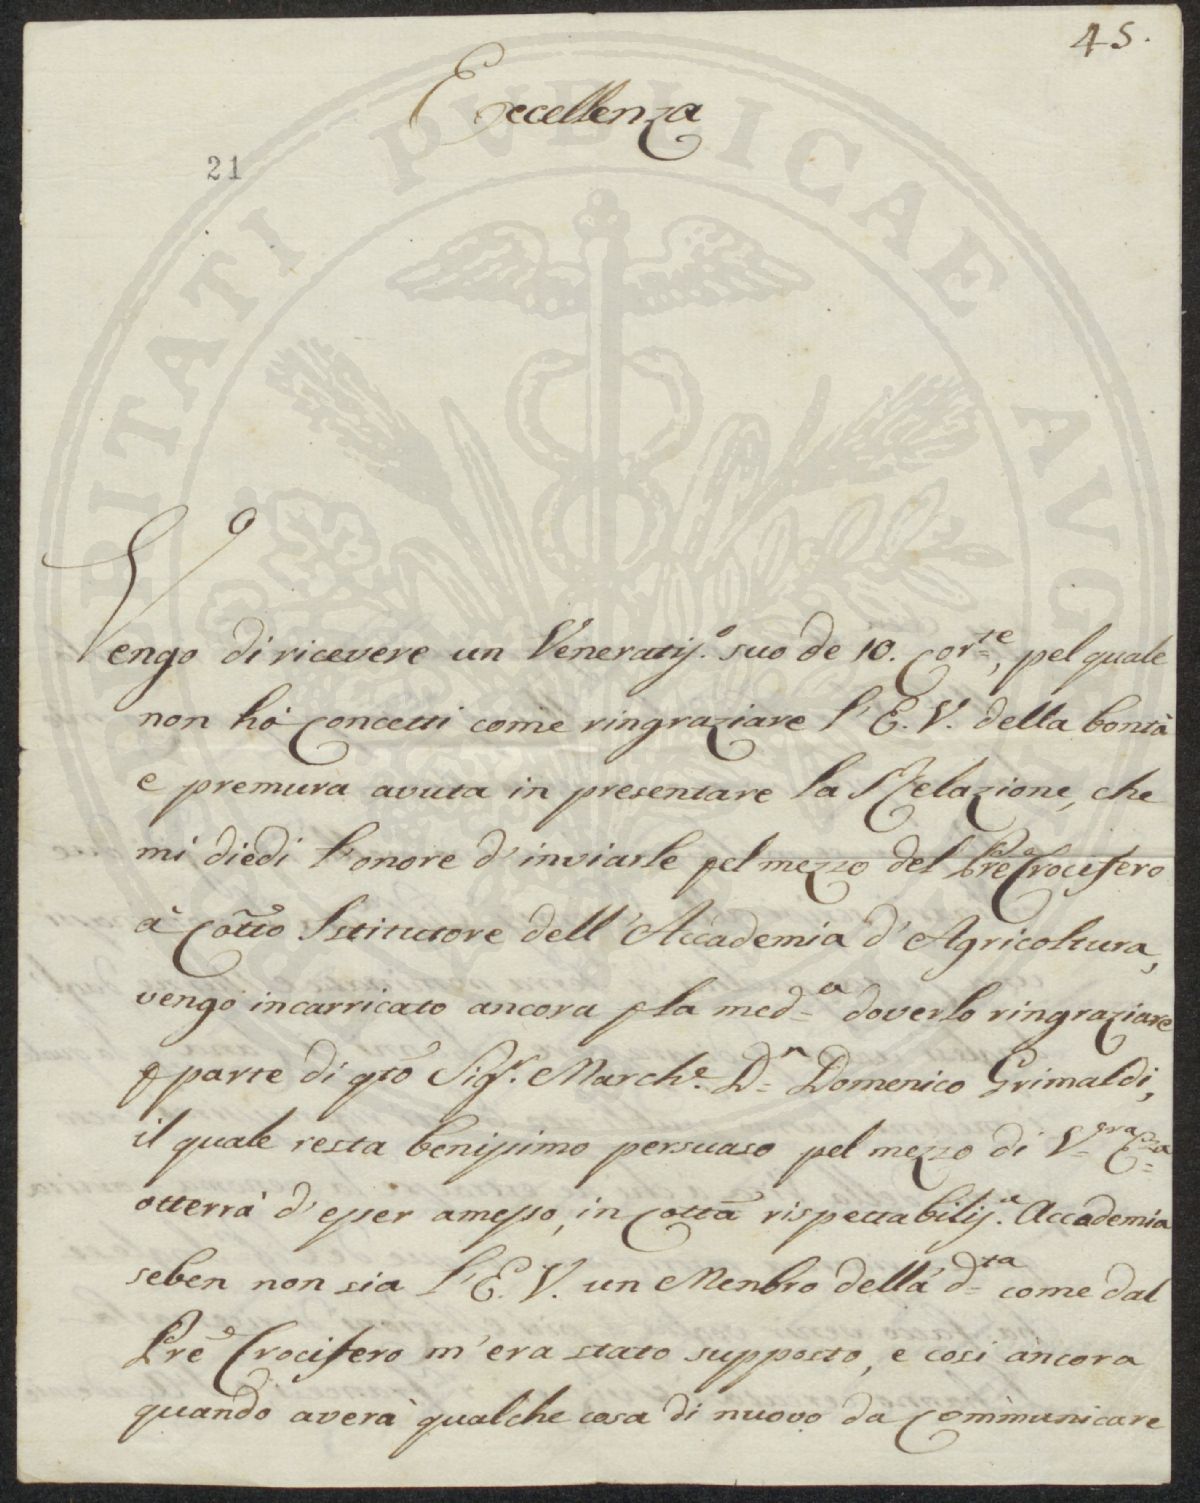 45.
Eccellenza
21
Vengo di ricevere un Veneratiss.º suo de 10. Corte, pel quale
non hò Concetti come ringraziare l'E. V. della bontà
e premura avuta in presentare la Relazione, che
mi diedi l'onore d'inviarle pel mezzo del Pre Crocifero
à cotto Istitutore dell'Accademia d'Agricoltura,
vengo incarricato ancora p la meda doverlo ringraziare
p parte di qto Sigr. Marche. Dn Domenico Grimaldi,
il quale resta benissimo persuaso pel mezzo di Vra Eza
otterrà d'esser amesso, in cotta rispettabiliss.a Accademia
seben non sia l'E. V. un Menbro della dta come dal
Pre Crocifero m'era stato supposto, e così ancora
quando averà qualche cosa di nuovo da communicare
PVBLICAE AVG